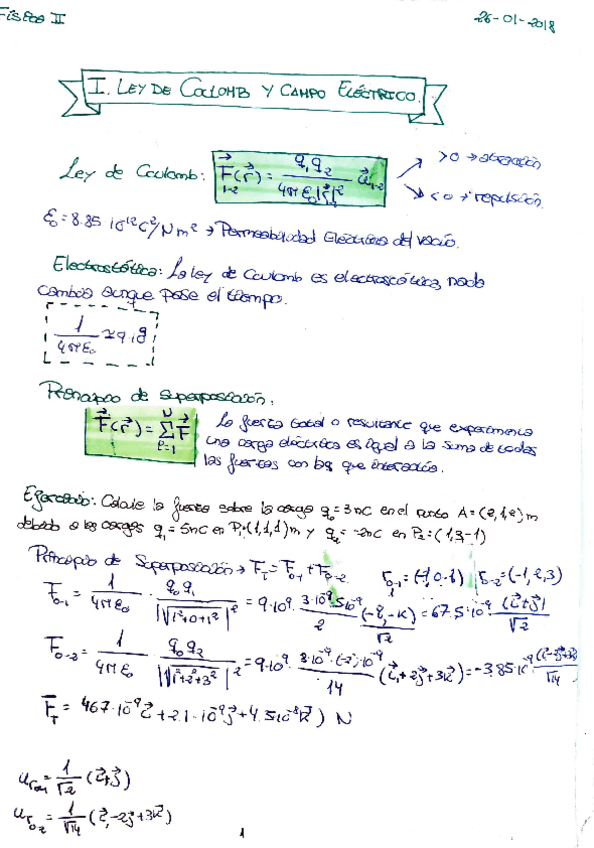 Física II 26-01-2018
I. LEY DE COULOMB Y CAMPO ELÉCTRICO.
Ley de Coulomb: F⃗(r⃗)₁₋₂ = q₁q₂ / 4πε₀|r⃗|² u⃗₁₋₂ >0 → atracción
<0 → repulsión.
ε₀ = 8.85 10¹² C²/Nm² → Permeabilidad Eléctrica del vacío.
Electrostática: La ley de Coulomb es electrostática, nada
cambia aunque pase el tiempo.
1 / 4πε₀ ≃ 9·10⁹
Principio de superposición:
F⃗(r⃗) = Σ F⃗ La fuerza total o resultante que experimenta
una carga eléctrica es igual a la suma de todas
las fuerzas con las que interacciona.
Ejercicio: Calcule la fuerza sobre la carga q₀ = 3nC en el punto A = (2,1,2)m
debida a las cargas q₁ = 5nC en P₁ = (1,1,1)m y q₂ = -2nC en P₂ = (1,3,-1)
Principio de Superposición → F_T = F₀₋₁ + F₀₋₂
F₀₋₁ = 1 / 4πε₀ · q₀q₁ / |√1²+0+1²|² = 9·10⁹ · 3·10⁻⁹·5·10⁻⁹ / 2
F₀₋₂ = 1 / 4πε₀ · q₀q₂ = 9·10⁹ · 3·10⁻⁹·(-2)·10⁻⁹ / 14
1